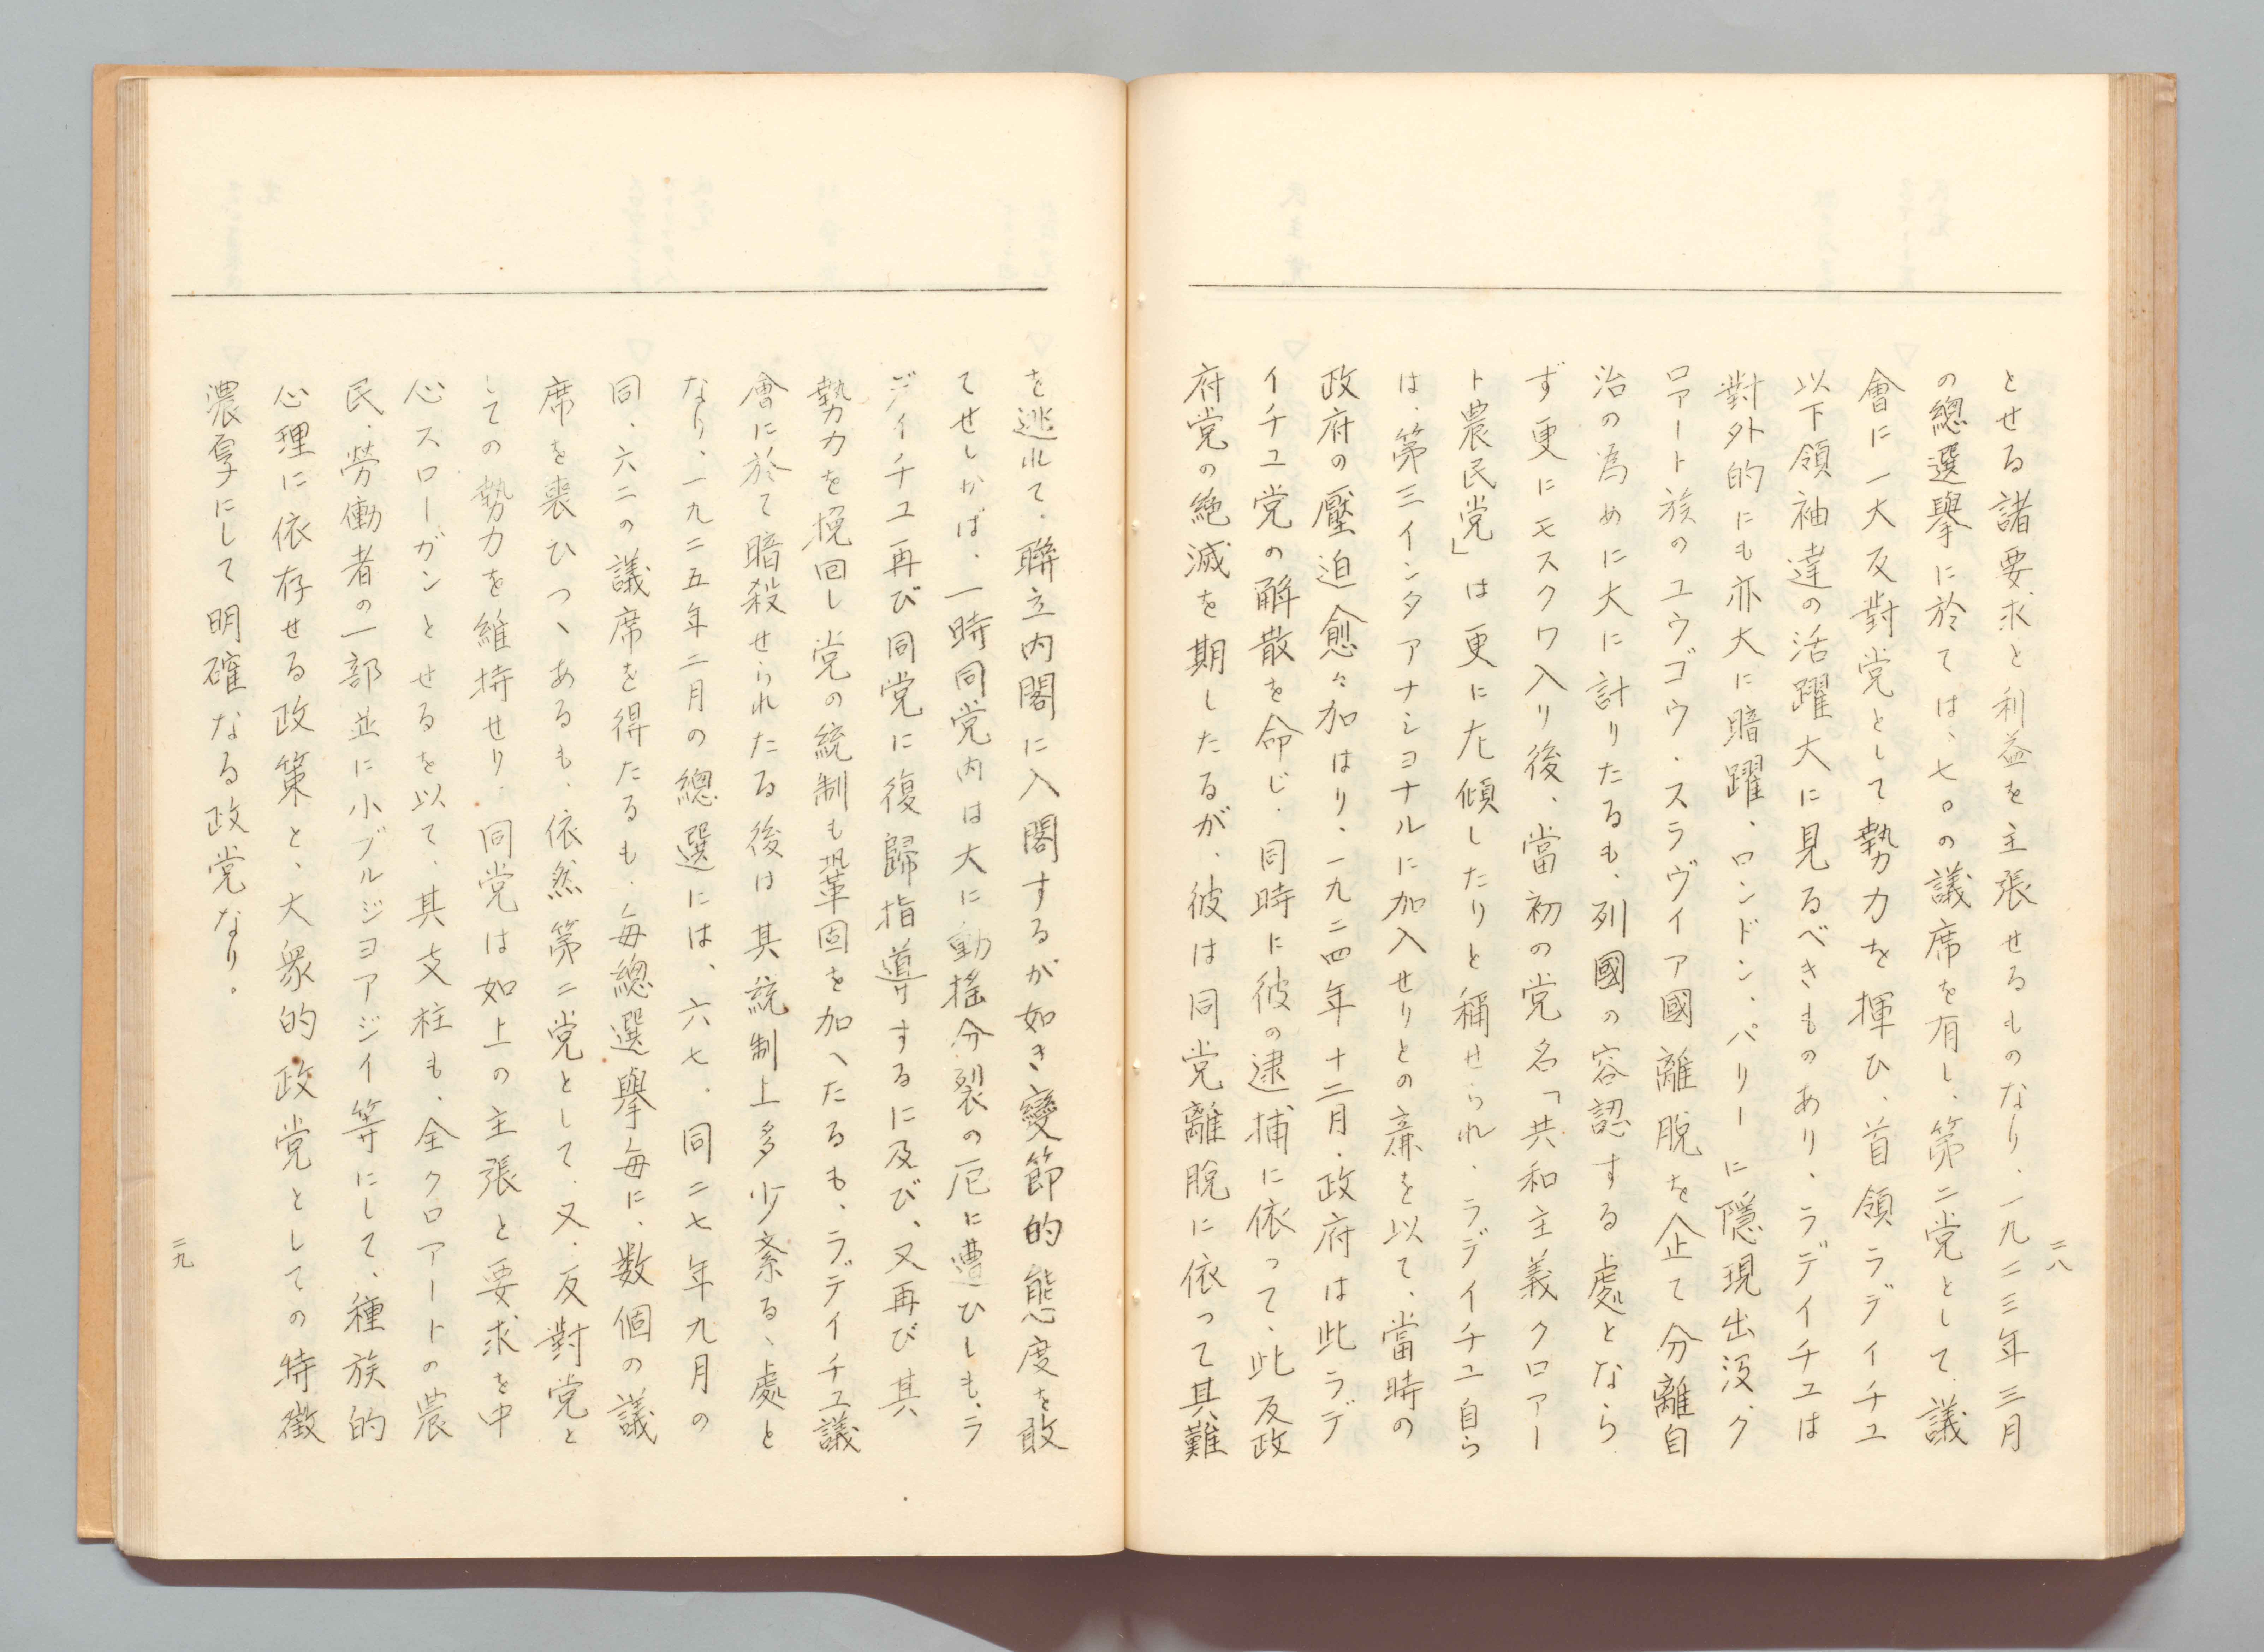 とせる諸要求と利益を主張せるものなり、一九二三年三月
の總選擧に於ては、七〇の議席を有し、第二党として、議
會に一大反對党として勢力を揮ひ、首領ラディチユ
以下領袖達の活躍大に見るべきものあり、ラディチユは
對外的にも亦大に暗躍、ロンドン、パリーに隱現出沒、ク
ロアート族のユウゴウ・スラヴィア國離脫を企て分離自
治の為めに大に計りたるも、列國の容認する處となら
ず更にモスクワ入り後、當初の党名「共和主義クロアー
ト農民党」は更に左傾したりと稱せられ、ラディチユ自ら
は、第三インタアナシヨナルに加入せりとの廉を以て、當時の
政府の壓迫愈々加はり、一九二四年十二月、政府は此ラデ
イチユ党の解散を命じ、同時に彼の逮捕に依って、此反政
府党の絶滅を期したるが、彼は同党離脫に依って其難
二八
を逃れて、聯立内閣に入閣するが如き變節的態度を敢
てせしかば、一時同党内は大に動搖分裂の厄に遭ひしも、ラ
ディチユ再び同党に復歸指導するに及び、又再び其
勢力を挽回し党の統制も鞏固を加へたるも、ラディチユ議
會に於て暗殺せられたる後は其統制上多少紊るゝ處と
なり、一九二五年二月の總選には、六七、同二七年九月の
同、六二の議席を得たるも、每總選擧每に、数個の議
席を喪ひつゝあるも、依然第二党として、又、反對党と
しての勢力を維持せり、同党は如上の主張と要求を中
心スローガンとせるを以て、其支柱も、全クロアートの農
民、勞働者の一部並に小ブルジヨアジイ等にして、種族的
心理に依存せる政策と、大衆的政党としての特徴
濃厚にして明確なる政党なり。
二九